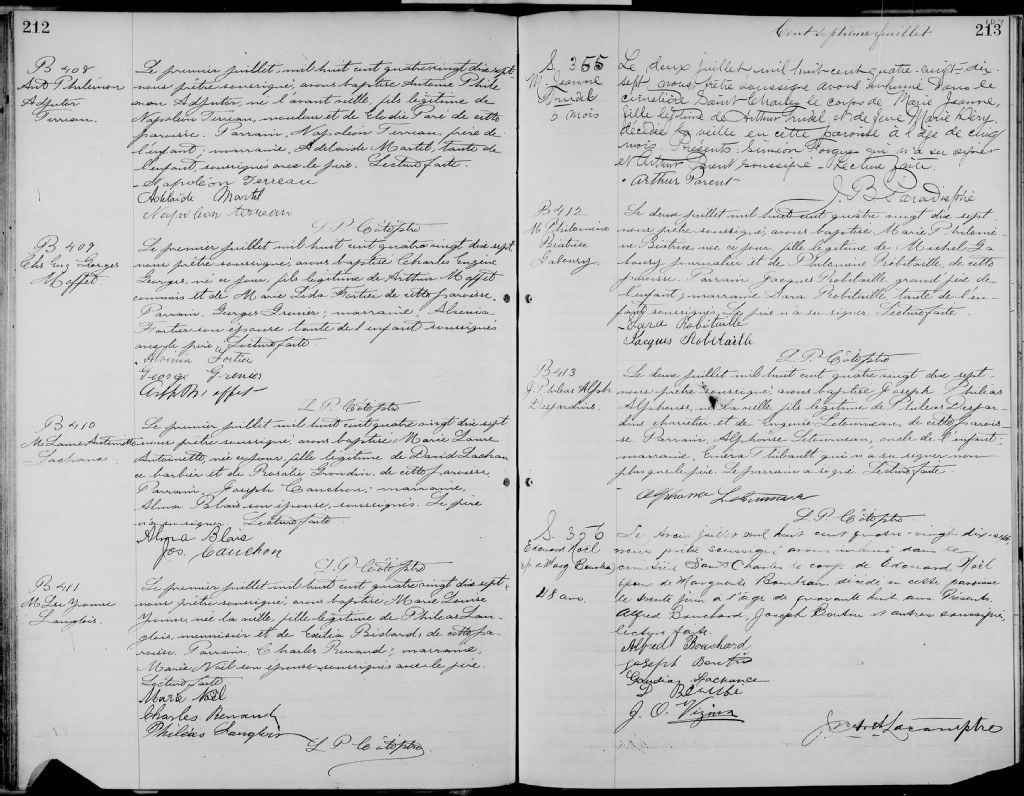 212
B 408
Ant Philémon
Adjutor
Terreau.
Le premier juillet, mil huit cent quatre vingt dix sept
nous prêtre soussigné, avons baptisé Antoine Philé
mon Adjutor, né l'avant veille, fils légitime de
Napoléon Terreau, menteur et de Elodie Paré de cette
paroisse. Parrain, Napoléon Terreau, frère de
l'enfant; marraine, Adelaide Martel, tante de
l'enfant, soussignés avec le père. Lecture faite.
Napoléon Terreau
Adélaide Martel
Napoleon terreau
L. P. Côté ptre
B 409
Chs Eug Georges
Moffet.
Le premier juillet, mil huit cent quatre vingt dix sept
nous prêtre soussigné, avons baptisé Charles Eugène
Georges, né ce jour, fils légitime de Arthur Moffet
commis et de Marie Lida Fortier de cette paroisse.
Parrain, Georges Grenier; marraine, Alvenia
Fortier son épouse tante de l'enfant soussignés
avec le père. Lecture faite
Alvenia Fortier
George Grenier
Arth Moffet
L. P. Côté ptre
B 410
M Laure Antoinette
Lachance.
Le premier juillet, mil huit cent quatre vingt dix sept
nous prêtre soussigné, avons baptisé Marie Laure
Antoinette, née ce jour, fille légitime de David Lachan
ce barbier et de Rosalie Grondin de cette paroisse.
Parrain, Joseph Cauchon; marraine,
Alma Blais son épouse, soussignés. Le père
n'a su signer. Lecture faite
Alma Blais
Jos. Cauchon
L. P. Côté ptre
B 411
M Lse Yvonne
Langlois.
Le premier juillet, mil huit cent quatre vingt dix sept
nous prêtre soussigné, avons baptisé Marie Louise
Yvonne, née la veille, fille légitime de Philéas Lan-
glois, menuisier et de Exilia Bédard, de cette pa-
roisse. Parrain, Charles Renaud; marraine,
Marie Noël son épouse soussignés avec le père.
Lecture faite
Marie Noël
Charles Renaud
Philéas Langlois
L. P. Côté ptre
Cent septième feuillet
213
S. 355
M Jeanne
Trudel
5 mois
Le deux juillet mil huit-cent quatre-vingt-dix-
sept nous prêtre soussigné avons inhumé dans le
cimetière Saint Charles le corps de Marie Jeanne,
fille légitime de Arthur Trudel, et de feue Marie Déry,
décédée la veille en cette paroisse à l'âge de cinq
mois. Présents: Siméon Forgues qui n'a su signer
et Arthur Parent soussigné - Lecture faite.
Arthur Parent
J. B. Paradis ptre
B 412
M Philomène
Béatrice
Gaboury.
Le deux juillet mil huit cent quatre vingt dix sept
nous prêtre soussigné, avons baptisé Marie Philomè
ne Béatrice née ce jour, fille légitime de Michel Ga
boury journalier et de Philomène Robitaille, de cette
paroisse. Parrain Jacques Robitaille grand père de
l'enfant; marraine Zara Robitaille tante de l'en-
fant soussignés. Le père n'a su signer. Lecture faite
Zara Robitaille
Jacques Robitaille
L. P. Côté ptre
B 413
J. Philéas Alph
Desjardins.
Le deux juillet mil huit cent quatre vingt dix sept
nous prêtre soussigné, avons baptisé Joseph Philéas
Alphonse, né la veille, fils légitime de Philéas Desjar
dins charretier et de Eugénie Létourneau, de cette parois
se. Parrain, Alphonse Létourneau, oncle de l'enfant;
marraine, Thibault qui n'a su signer non
plus que le père. Le parrain a signé. Lecture faite.
Alphonse Letourneau
L. P. Côté ptre
S. 356
Edouard Noël
ép. de Marg Bouchard
48 ans.
Le trois juillet mil huit cent quatre-vingt dix-sept
nous prêtre soussigné avons inhumé dans le
cimetière Saint Charles le corps de Edouard Noël
époux de Marguerite décédé en cette paroisse
le trente juin à l'âge de quarante huit ans. Présents
Alfred Bouchard, Joseph Boutin et autres soussignés,
lecture faite.
Alfred Bouchard
Joseph Boutin
Lachance
J. O. Vézina